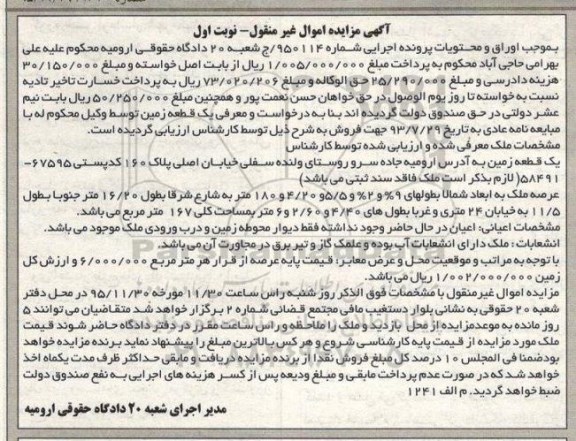 آگهی مزایده اموال غیر منقول- نوبت اول
بموجب اوراق و محتویات پرونده اجرایی شماره ۹۵۰۱۱۴/ج شعبه ۲۰ دادگاه حقوقی ارومیه محکوم علیه علی
بهرامی حاجی آباد محکوم به پرداخت مبلغ ۱/۰۰۵/۰۰۰/۰۰۰ ریال از بابت اصل خواسته و مبلغ ۳۰/۱۵۰/۰۰۰
هزینه دادرسی و مبلغ ۲۵/۲۹۰/۰۰۰ حق الوکاله و مبلغ ۷۳/۰۲۰/۲۰۶ ریال به پرداخت خسارت تاخیر تادیه
نسبت به خواسته تا روز یوم الوصول در حق خواهان حسن نعمت پور و همچنین مبلغ ۵۰/۲۵۰/۰۰۰ ریال بابت نیم
عشر دولتی در حق صندوق دولت گردیده اند بنا به درخواست و معرفی یک قطعه زمین توسط وکیل محکوم له با
مبایعه نامه عادی به تاریخ ۹۳/۷/۲۹ جهت فروش به شرح ذیل توسط کارشناس ارزیابی گردیده است.
مشخصات ملک معرفی شده و ارزیابی شده توسط کارشناس
یک قطعه زمین به آدرس ارومیه جاده سرو روستای ولنده سفلی خیابان اصلی پلاک ۱۶۰ کدپستی ۶۷۵۹۵-
۵۸۴۹۱( لازم بذکر است ملک فاقد سند ثبتی می باشد)
عرصه ملک به ابعاد شمالا بطولهای ۹% و ۲% و ۵/۵و ۴/۲۰ و ۱۸۰ متر به شارع شرقا بطول ۱۶/۲۰ متر جنوبا بطول
۱۱/۵ به خیابان ۲۴ متری و غربا بطول های ۴/۴۰ و ۲/۶۰ و ۶ متر بمساحت کلی ۱۶۷ متر مربع می باشد.
مشخصات اعیانی: اعیان در حال حاضر وجود نداشته فقط دیوار محوطه زمین و درب ورودی ملک موجود می باشد.
انشعابات : ملک دارای انشعابات آب بوده و علمک گاز و تیر برق در مجاورت آن می باشد.
با توجه به مراتب و موقعیت محل و عرض معابر: قیمت پایه عرصه از قرار هر متر مربع ۶/۰۰۰/۰۰۰ و ارزش کل
زمین ۱/۰۰۲/۰۰۰/۰۰۰ ریال می باشد.
مزایده اموال غیر منقول با مشخصات فوق الذکر روز شنبه راس ساعت ۱۱/۳۰ مورخه ۹۵/۱۱/۳۰ در محل دفتر
شعبه ۲۰ حقوقی به نشانی بلوار دستغیب مافی مجتمع قضائی شماره ۲ برگزار خواهد شد متقاضیان می توانند ۵
روز مانده به موعد مزایده از محل بازدید و ملک را ملاحظه و راس ساعت مقرر در دفتر دادگاه حاضر شوند قیمت
ملک مورد مزایده از قیمت پایه کارشناسی شروع و هر کس بالاترین مبلغ را پیشنهاد نماید برنده مزایده خواهد
بود ضمنا فی المجلس ۱۰ درصد کل مبلغ فروش نقدا از برنده مزایده دریافت و مابقی حداکثر ظرف مدت یکماه اخذ
خواهد شد که در صورت عدم پرداخت مابقی و مبلغ ودیعه پس از کسر هزینه های اجرایی به نفع صندوق دولت
ضبط خواهد گردید. م الف ۱۲۴۱
مدیر اجرای شعبه ۲۰ دادگاه حقوقی ارومیه